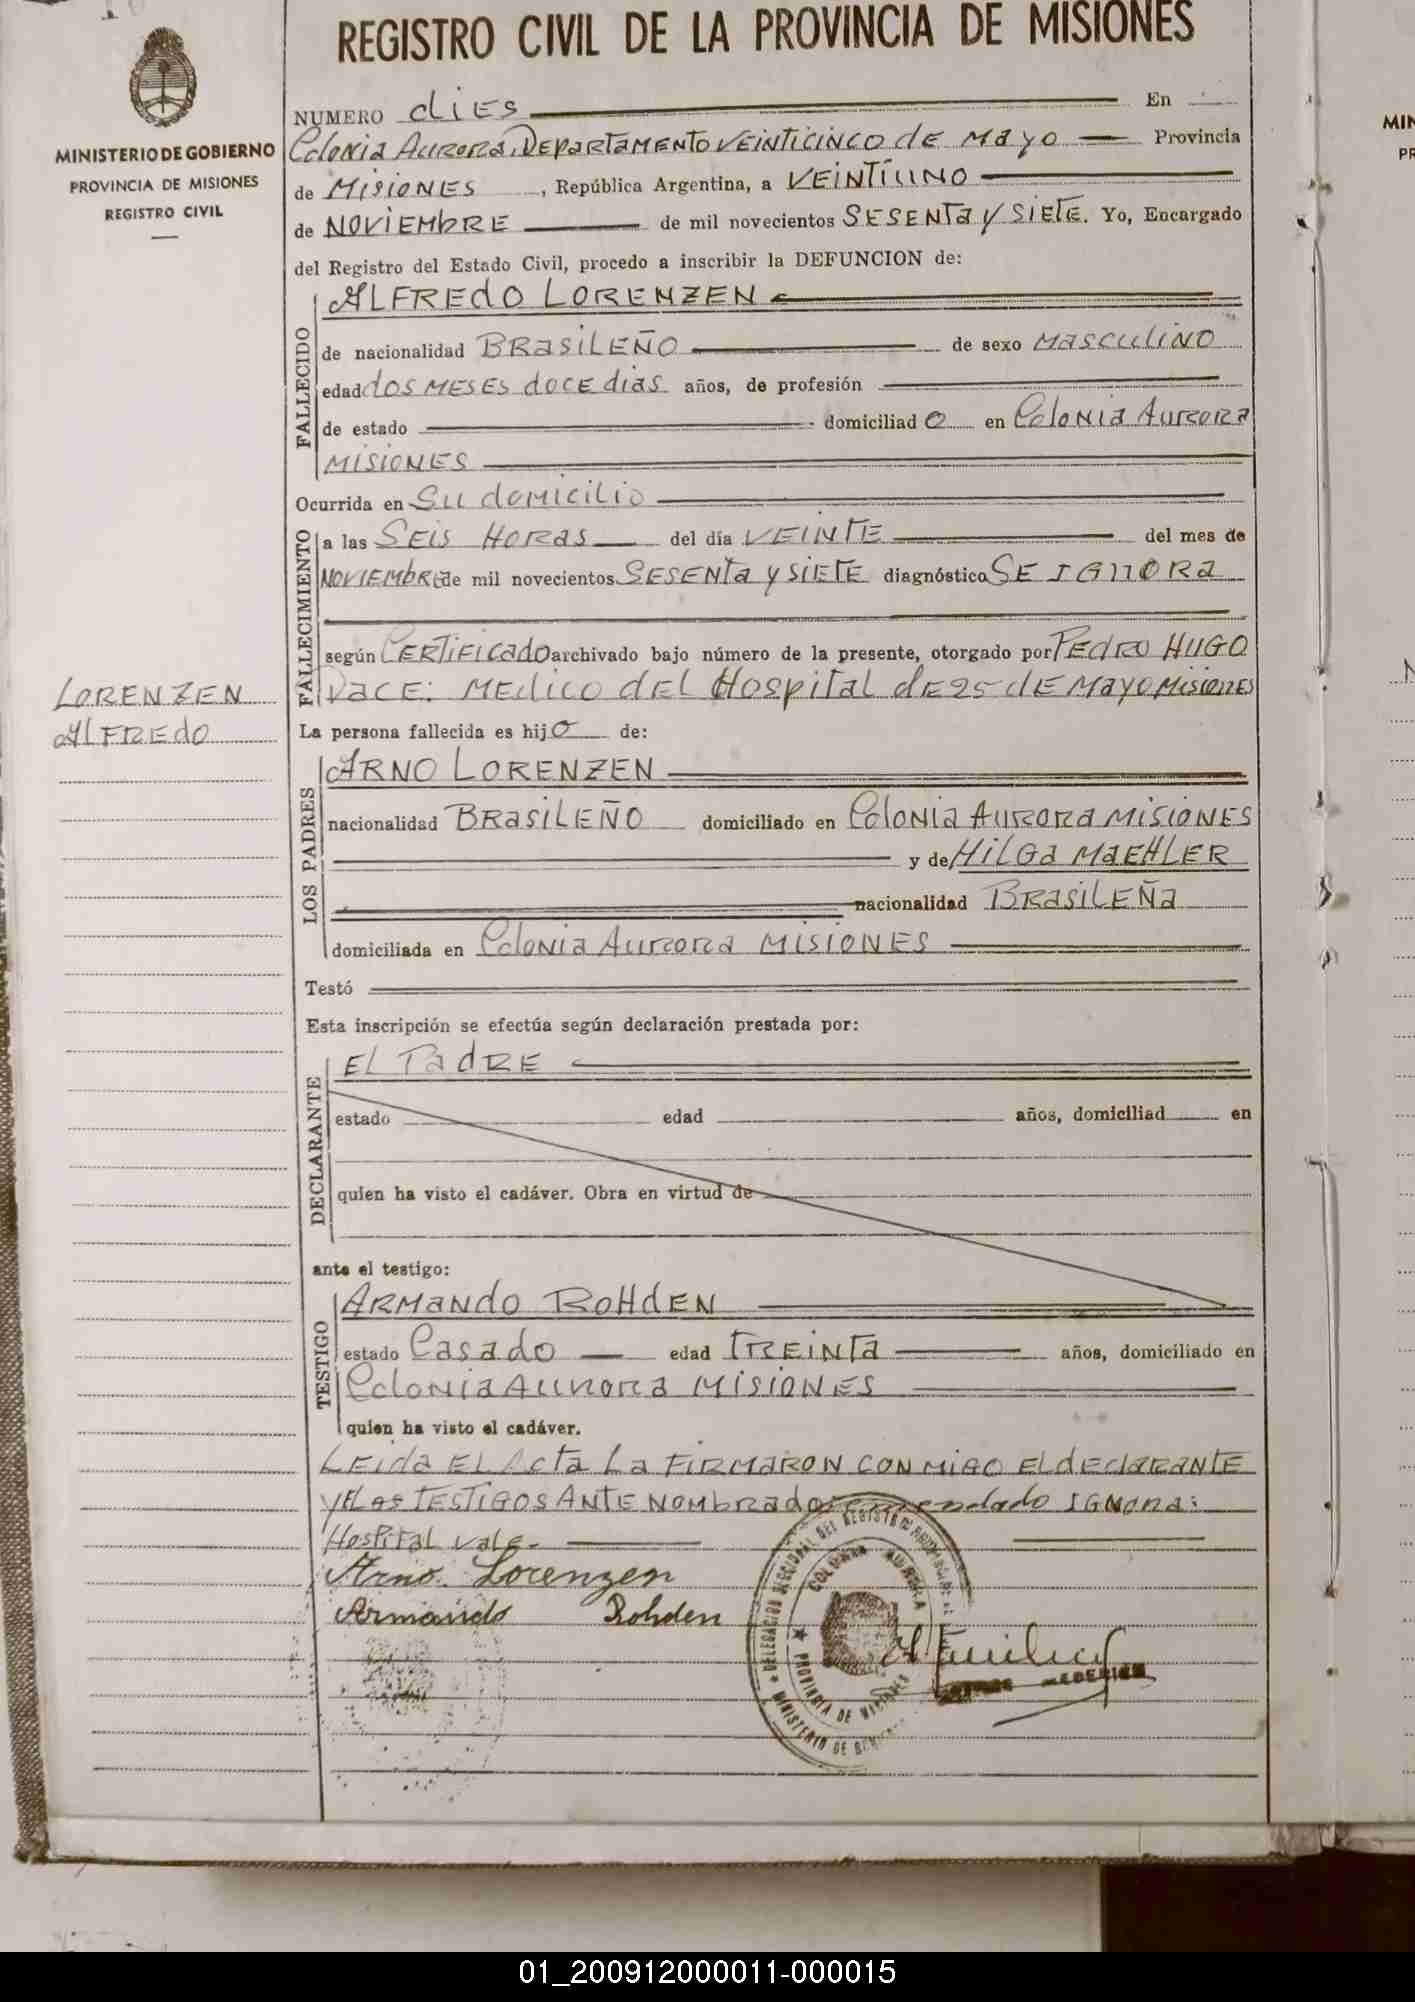 REGISTRO CIVIL DE LA PROVINCIA DE MISIONES
MINISTERIO DE GOBIERNO
PROVINCIA DE MISIONES
REGISTRO CIVIL
NUMERO diES En
Colonia Aurora, DEpartaMENto VEiNtiCiNCO dE Mayo Provincia
de MiSiONES, República Argentina, a VEiNTiUNO
de NOViEMbRE de mil novecientos SESENTa y SiETE. Yo, Encargado
del Registro del Estado Civil, procedo a inscribir la DEFUNCION de:
ALFREdO LORENZEN
FALLECIDO
de nacionalidad BRaSiLEÑO de sexo MaSCuliNO
edad dOS MESES dOCE diaS años, de profesión
de estado domiciliado en Colonia Aurora
MiSiONES
Ocurrida en Su domicilio
FALLECIMIENTO
a las SEiS HORaS del día VEiNTE del mes de
NOViEMbRE de mil novecientos SESENTa y SiETE diagnóstico SE IGNORa
según CERTiFiCadO archivado bajo número de la presente, otorgado por PEdRO HUGO
MEdiCO dEL HOSpital dE 25 dE Mayo MiSiONES
LORENZEN
ALFREdO
La persona fallecida es hijo de:
LOS PADRES
ARNO LORENZEN
nacionalidad BRaSiLEÑO domiciliado en Colonia Aurora MiSiONES
y de HiLGa MaEHLER
nacionalidad BRaSiLEÑa
domiciliada en Colonia Aurora MiSiONES
Testó
Esta inscripción se efectúa según declaración prestada por:
DECLARANTE
EL PadRE
estado edad años, domiciliad en
quien ha visto el cadáver. Obra en virtud de
ante el testigo:
TESTIGO
ARMaNdO ROHdEN
estado Casado edad TREiNTa años, domiciliado en
Colonia Aurora MiSiONES
quien ha visto el cadáver.
LEida EL Acta La FiRMaRON CON MiGO EL dEClaRaNTE
y Los TESTiGOS ANTE NOMbRadOS enmendado IGNORa:
HOSPiTaL Vale.
Arno Lorenzen
Armando Rohden
DELEGACION SECCIONAL DEL REGISTRO
COLONIA AURORA
PROVINCIA DE MISIONES
MINISTERIO DE
01_200912000011-000015